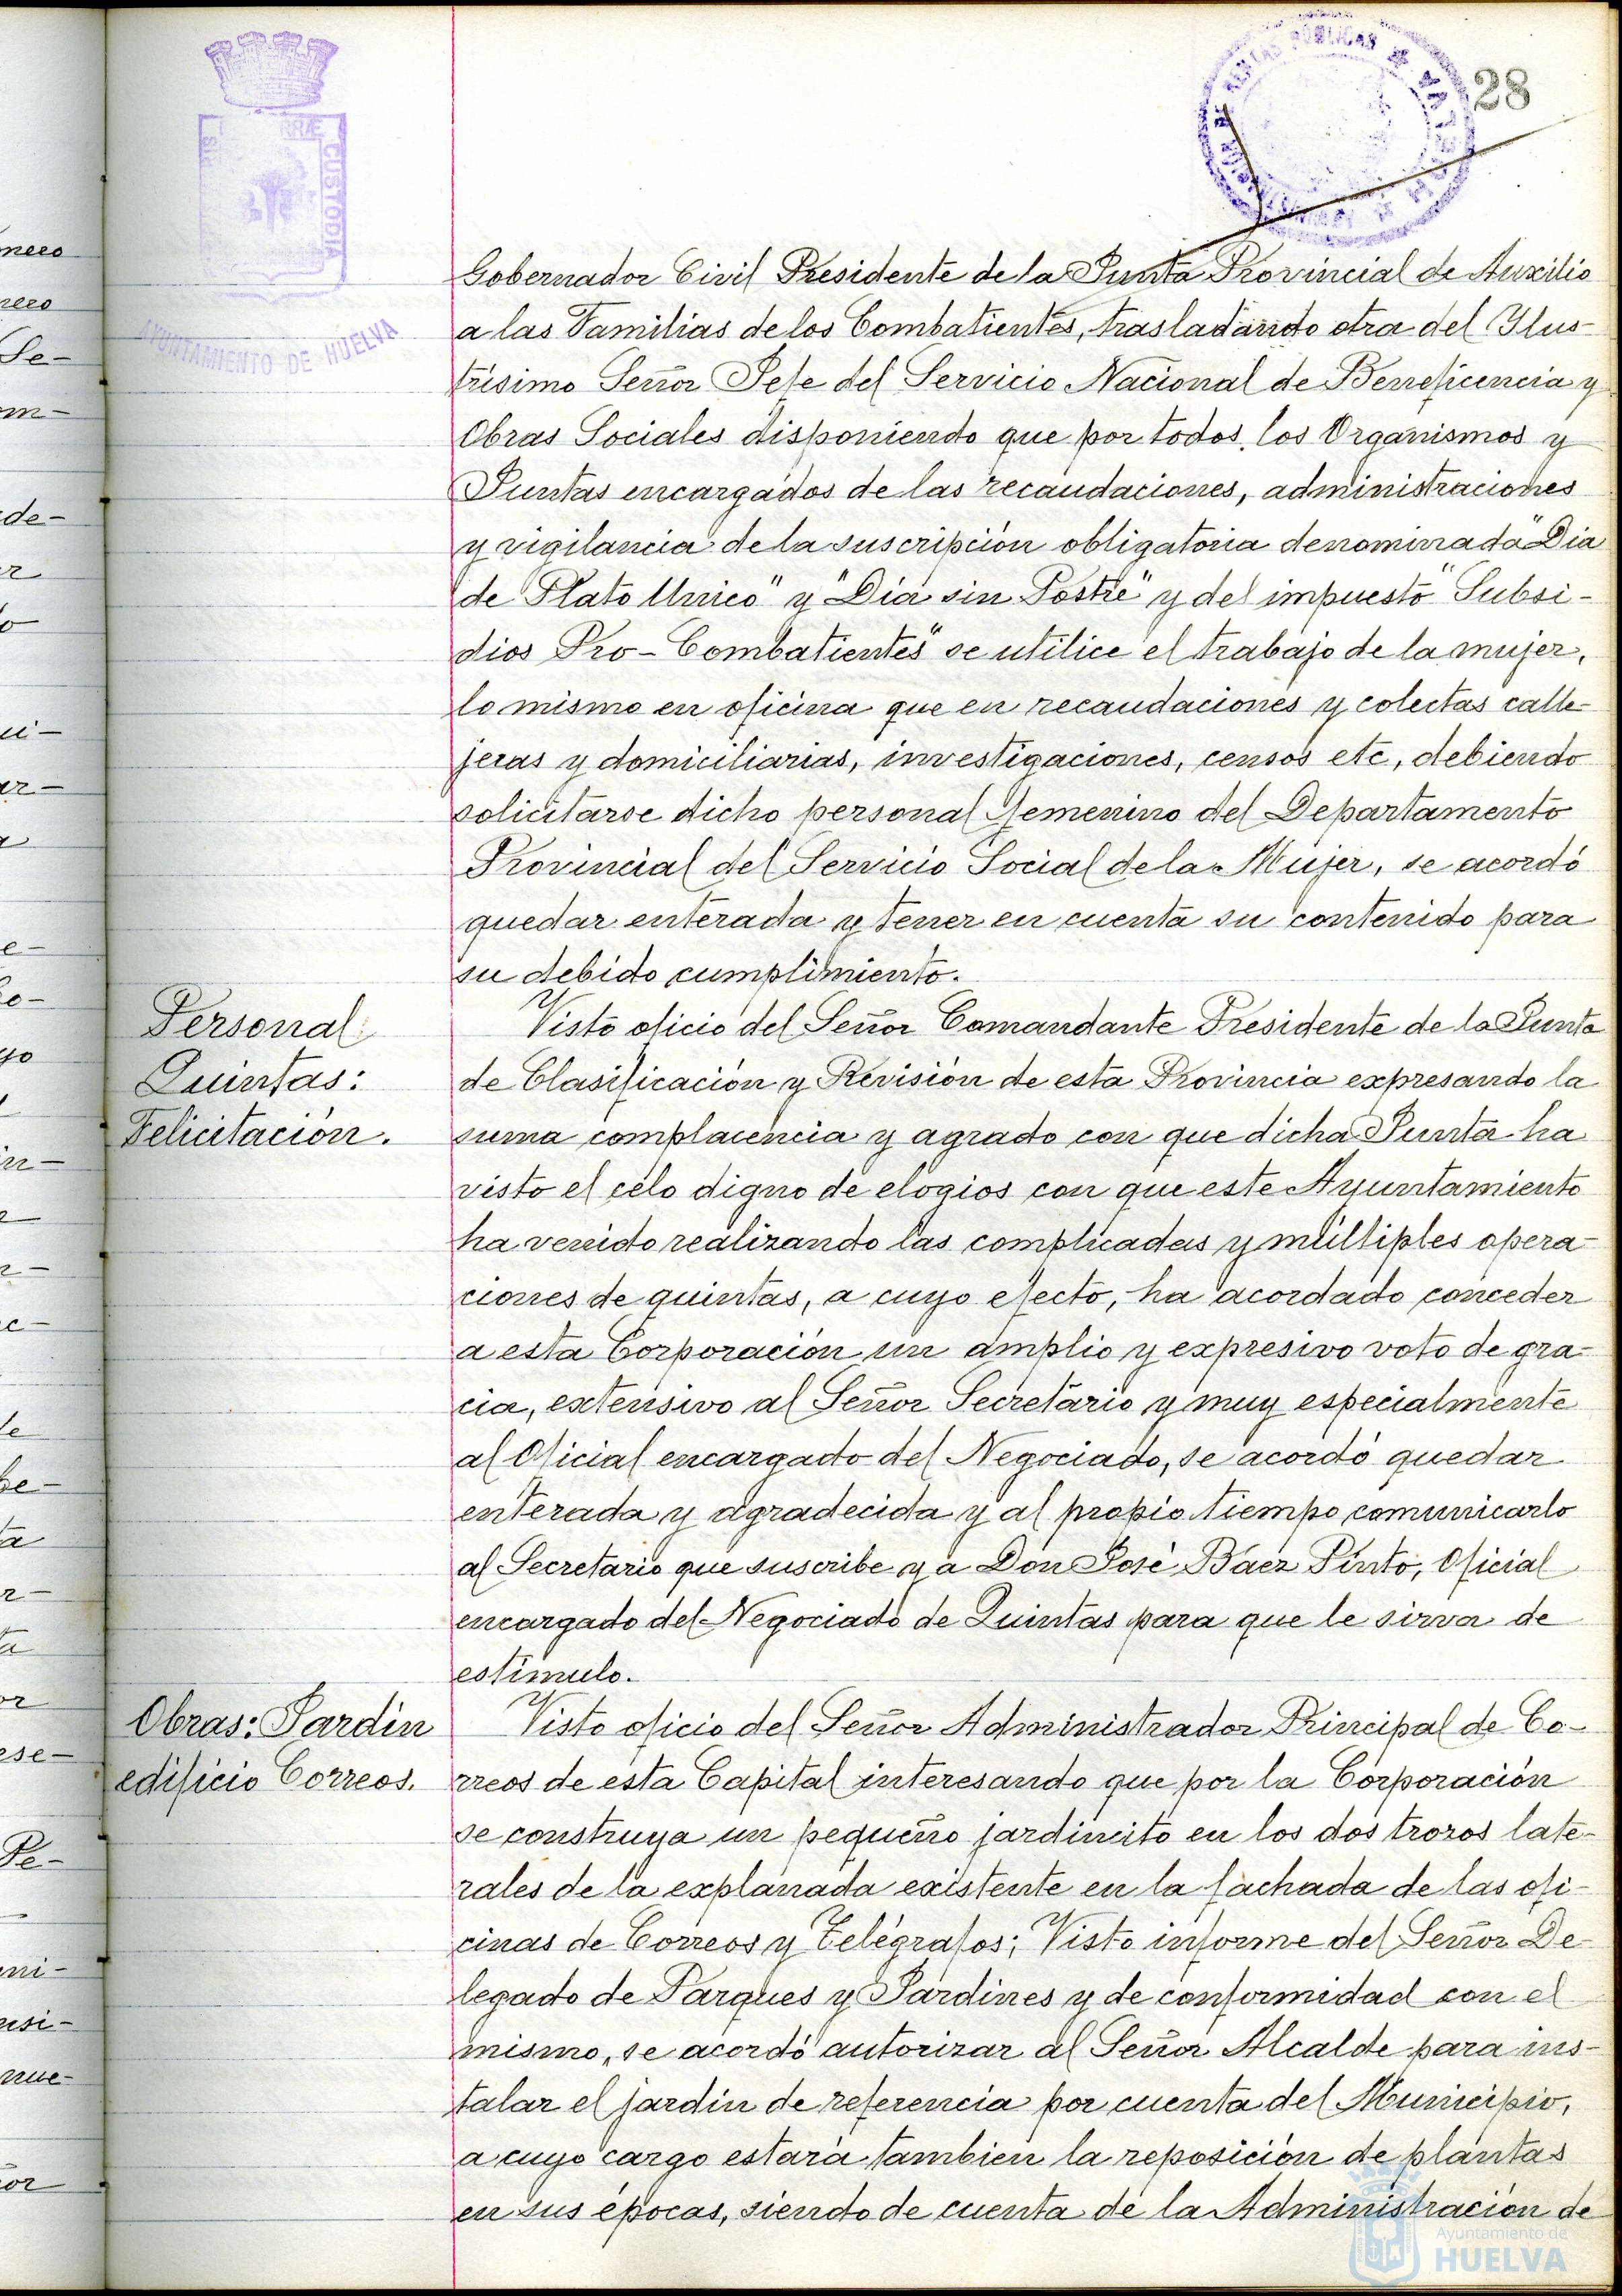 28
AYUNTAMIENTO DE HUELVA
CUSTODIA
Gobernador Civil Presidente de la Junta Provincial de Auxilio
a las Familias de los Combatientes, trasladando otra del Ilus-
trísimo Señor Jefe del Servicio Nacional de Beneficencia y
Obras Sociales disponiendo que por todos los Organismos y
Juntas encargados de las recaudaciones, administraciones
y vigilancia de la suscripción obligatoria denominada "Dia
de Plato Unico" y "Dia sin Postre" y del impuesto "Subsi-
dios Pro-Combatientes" se utilice el trabajo de la mujer,
lo mismo en oficina que en recaudaciones y colectas calle-
jeras y domiciliarias, investigaciones, censos etc, debiendo
solicitarse dicho personal femenino del Departamento
Provincial del Servicio Social de la Mujer, se acordó
quedar enterada y tener en cuenta su contenido para
su debido cumplimiento.
Personal
Quintas:
Felicitación.
Visto oficio del Señor Comandante Presidente de la Junta
de Clasificación y Revisión de esta Provincia expresando la
suma complacencia y agrado con que dicha Junta ha
visto el celo digno de elogios con que este Ayuntamiento
ha venido realizando las complicadas y múltiples opera-
ciones de quintas, a cuyo efecto, ha acordado conceder
a esta Corporación un amplio y expresivo voto de gra-
cia, extensivo al Señor Secretario y muy especialmente
al Oficial encargado del Negociado, se acordó quedar
enterada y agradecida y al propio tiempo comunicarlo
al Secretario que suscribe y a Don José Báez Pinto, Oficial
encargado del Negociado de Quintas para que le sirva de
estímulo.
Obras: Jardín
edificio Correos.
Visto oficio del Señor Administrador Principal de Co-
rreos de esta Capital interesando que por la Corporación
se construya un pequeño jardincito en los dos trozos late-
rales de la explanada existente en la fachada de las ofi-
cinas de Correos y Telégrafos; Visto informe del Señor De-
legado de Parques y Jardines y de conformidad con el
mismo, se acordó autorizar al Señor Alcalde para ins-
talar el jardín de referencia por cuenta del Municipio,
a cuyo cargo estará tambien la reposición de plantas
en sus épocas, siendo de cuenta de la Administración de
Ayuntamiento de
HUELVA